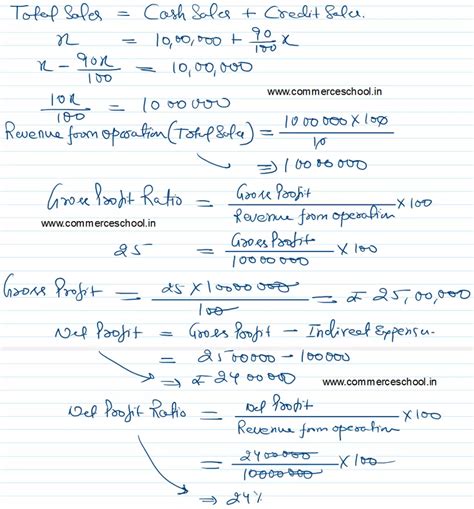 Total Sales = Cash Sales + Credit Sales.
x = 10,00,000 + 90/100 x
x - 90x/100 = 10,00,000
www.commerceschool.in
10x/100 = 1000000
Revenue from operation (Total Sales) = 1000000 X 100/10
⇒ 10000000
Gross Profit Ratio = Gross Profit/Revenue from operation X 100
www.commerceschool.in
25 = Gross Profit/10000000 X 100
Gross Profit = 25 X 10000000/100 = ₹ 25,00,000
Net Profit = Gross Profit - Indirect Expenses
= 2500000 - 100000
⇒ ₹ 2400000
www.commerceschool.in
Net Profit Ratio = Net Profit/Revenue from operation X 100
= 2400000/10000000 X 100
⇒ 24%